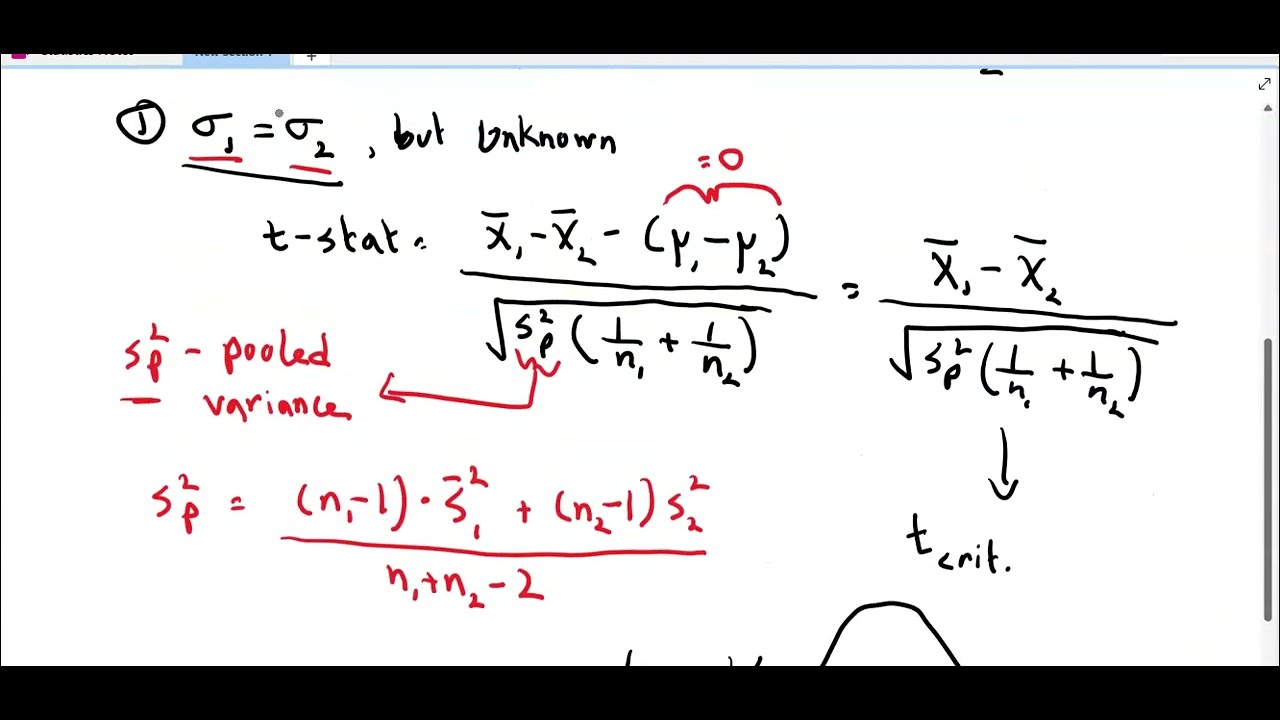 ① σ₁ = σ₂, but Unknown
= 0
t-stat = (x̄₁ - x̄₂ - (μ₁ - μ₂)) / √(s²ₚ (1/n₁ + 1/n₂)) = (x̄₁ - x̄₂) / √(s²ₚ (1/n₁ + 1/n₂))
s²ₚ - pooled
variance
s²ₚ = ((n₁-1) · s̄₁² + (n₂-1) s₂²) / (n₁+n₂-2)
t crit.